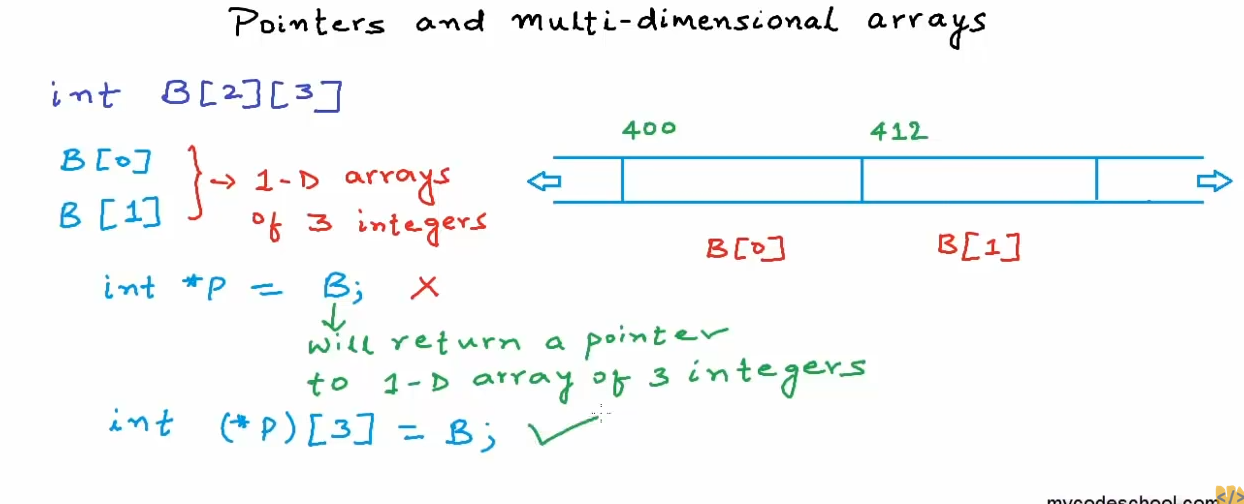 Pointers and multi-dimensional arrays
int B[2][3]
400 412
B[0]
B[1]
→ 1-D arrays
of 3 integers
B[0] B[1]
int *P = B; X
↓
will return a pointer
to 1-D array of 3 integers
int (*P)[3] = B; ✓
mycodeschool.com
</>